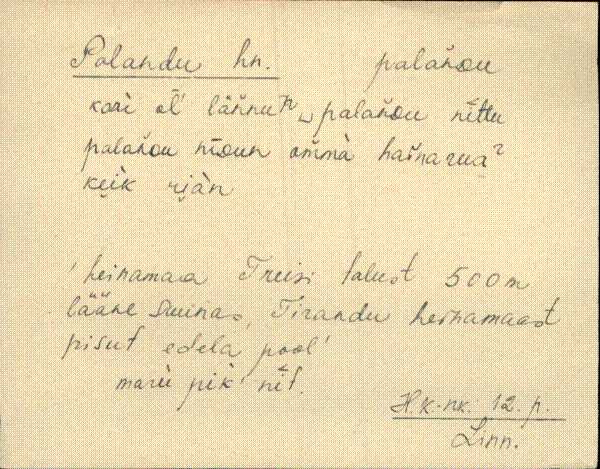 Palandu hn. palaňou
kari ol' läňnuⁿ palaňou nittu
palaňou nioun omma haina rua²
keik riàn
'heinamaa Treisi talust 500 m
lääne suunas, Tirandu heinamaast
pisut edela pool'
pik nit.
H.k-nk. 12. p.
Linn.